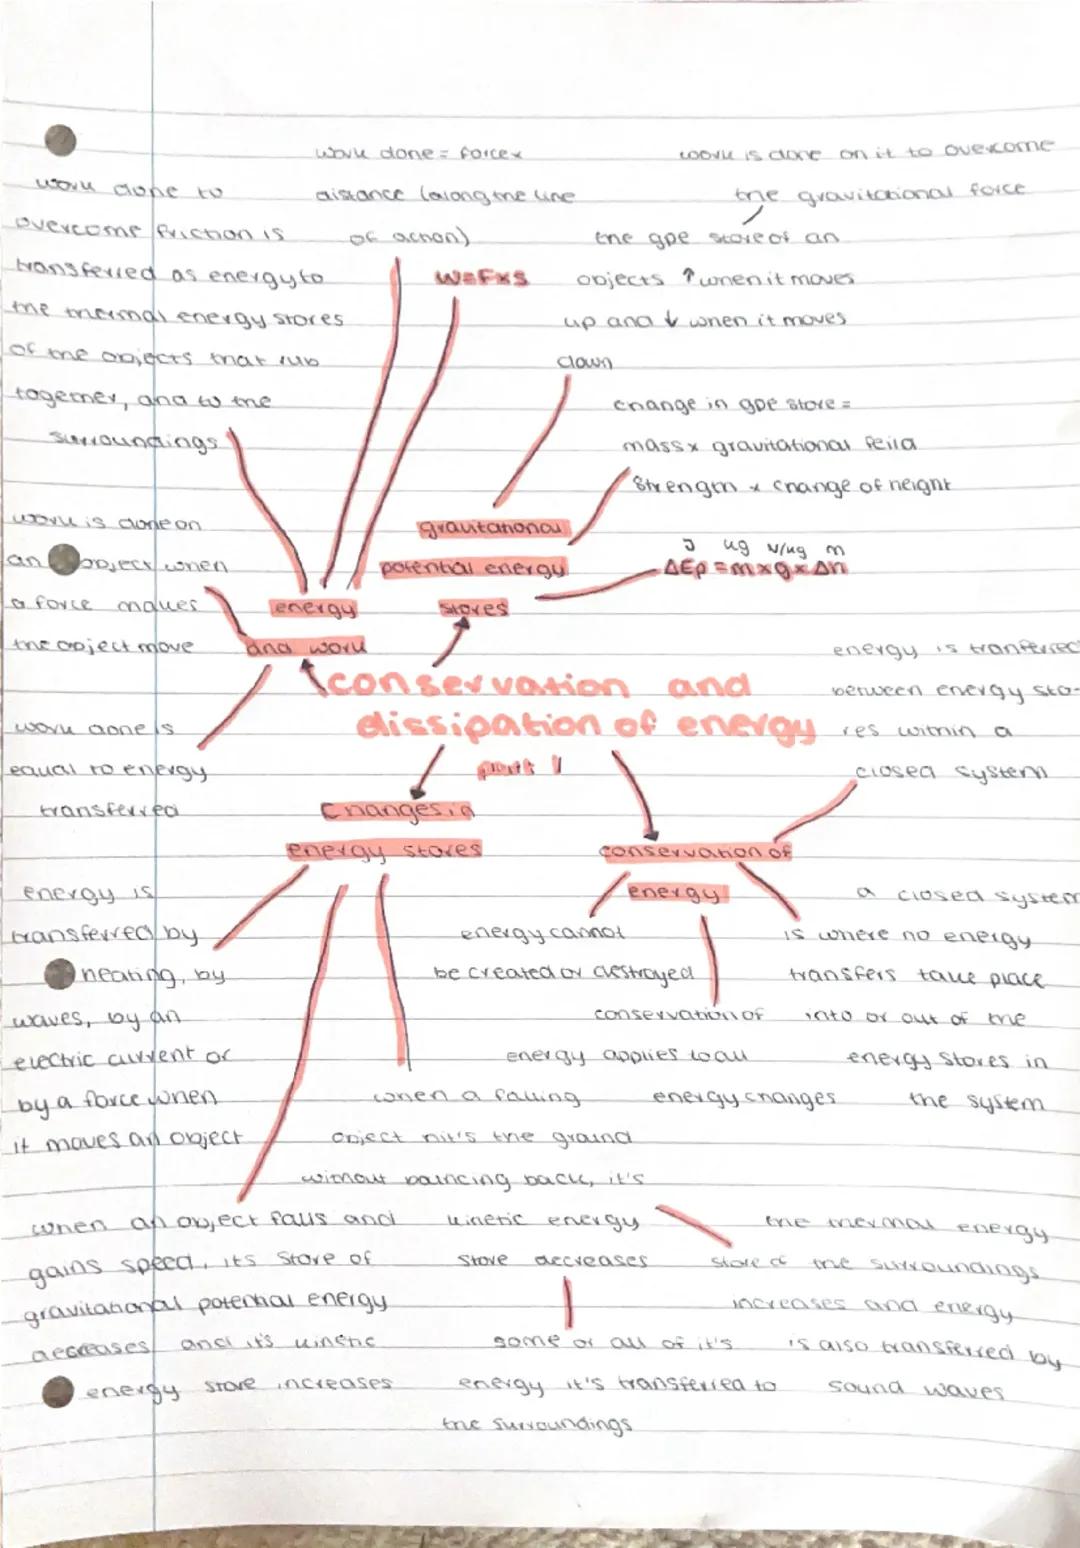 work done to
overcome friction is
transferred as energy to
the thermal energy stores
of the objects that rub
together, and to the
surroundings
work done = force x
distance (along the line
of action)
W=Fxs
work is done on it to overcome
the gravitational force
the gpe store of an
objects ↑ when it moves
up and ↓ when it moves
down
change in gpe store =
mass x gravitational feild
strength x change of height
gravitational
potential energy
stores
J kg N/kg m
ΔEp = m x g x Δh
work is done on
an object when
a force makes
the object move
energy
and work
work done is
equal to energy
transferred
conservation and
dissipation of energy
part 1
energy is tranferred
between energy sto-
res within a
closed system
changes in
energy stores
conservation of
energy
energy is
transferred by
heating, by
waves, by an
electric current or
by a force when
it moves an object
energy cannot
be created or destroyed
conservation of
energy applies to all
energy changes
a closed system
is where no energy
transfers take place
into or out of the
energy stores in
the system
when a falling
object hit's the ground
without bouncing back, it's
kinetic energy
store decreases
some or all of it's
energy it's transferred to
the surroundings
when an object falls and
gains speed, its store of
gravitational potential energy
decreases and it's kinetic
energy store increases
the thermal energy
store of the surroundings
increases and energy
is also transferred by
sound waves